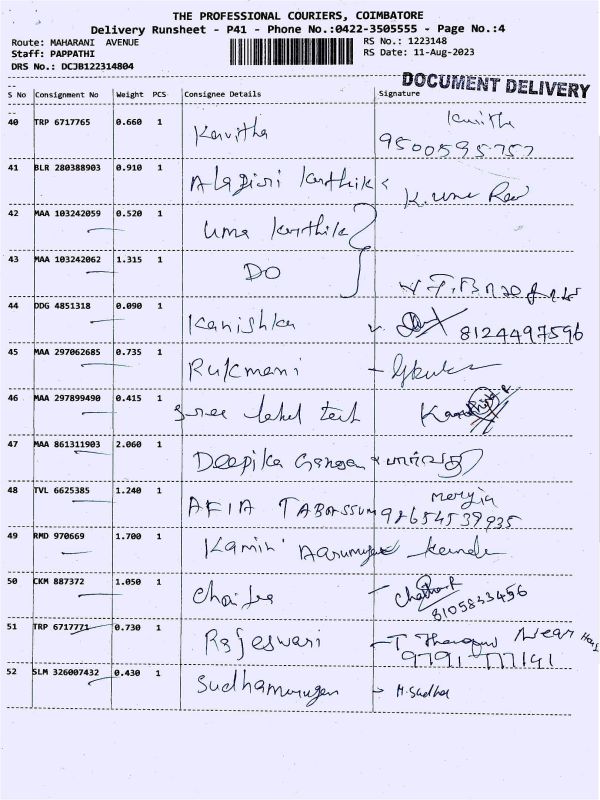 THE PROFESSIONAL COURIERS, COIMBATORE
Delivery Runsheet - P41 - Phone No.:0422-3505555 - Page No.:4
Route: MAHARANI AVENUE RS No.: 1223148
Staff: PAPPATHI RS Date: 11-Aug-2023
DRS No.: DCJB122314804
DOCUMENT DELIVERY
S No Consignment No Weight PCS Consignee Details Signature
40 TRP 6717765 0.660 1 Kavitha
9500595757
41 BLR 280388903 0.910 1 Karthik
K. Uma
42 MAA 103242059 0.520 1 Uma Karthik
43 MAA 103242062 1.315 1 DO
44 DDG 4851318 0.090 1 Kanishka 8124497596
45 MAA 297062685 0.735 1 Rukmani
46 MAA 297899490 0.415 1 Sree
47 MAA 861311903 2.060 1 Deepika
48 TVL 6625385 1.240 1 AFIA TABASSUM 98654539935
49 RMD 970669 1.700 1 Kamini
50 CKM 887372 1.050 1 Chaitra
8105833456
51 TRP 6717771 0.730 1 Rajeswari Near
9791-777141
52 SLM 326007432 0.430 1 Sudhamurugan M. Sudha